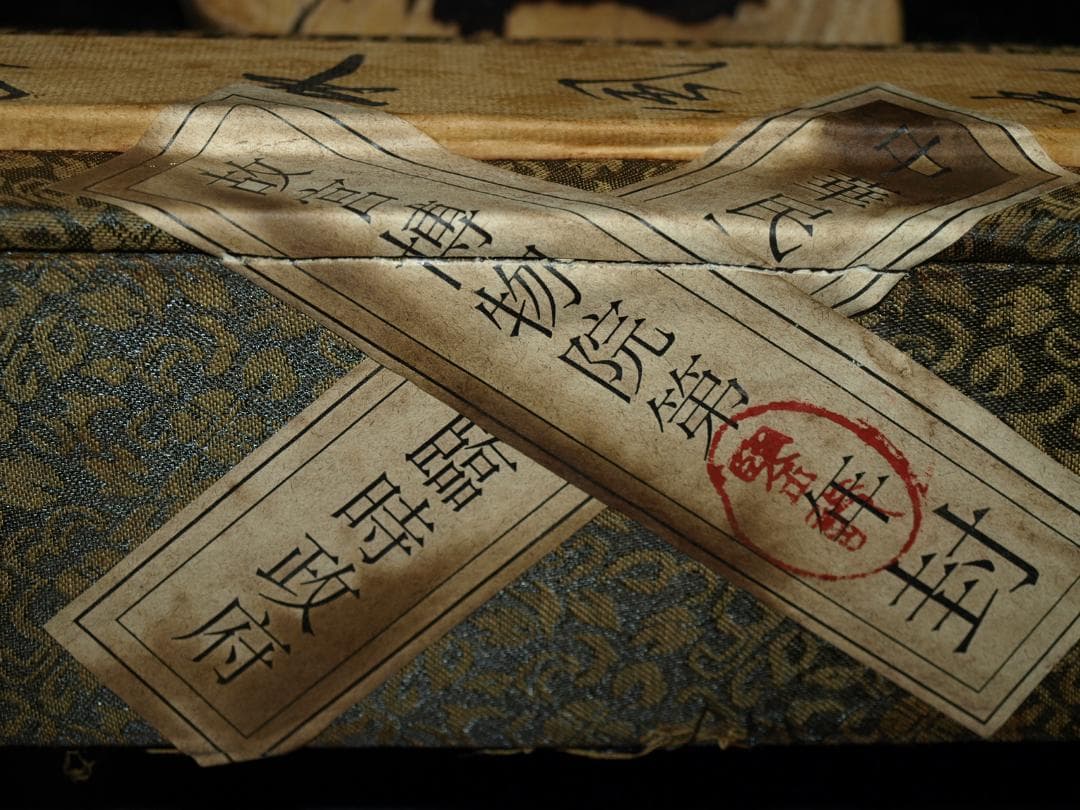 故宮博物院第年封
中華民
臨時政府